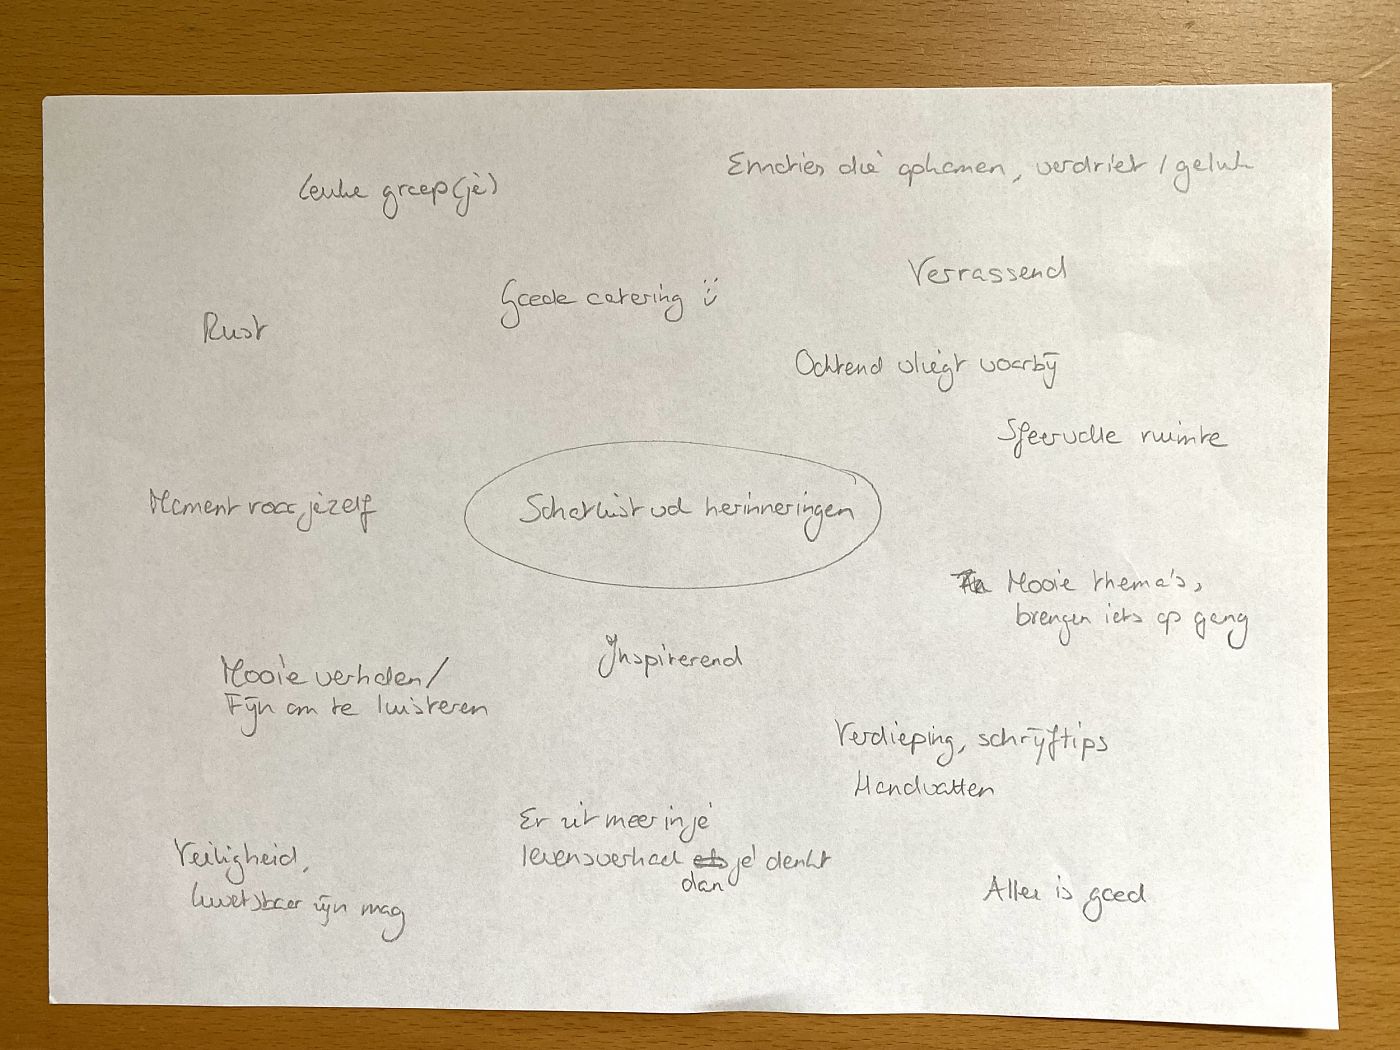 Emoties die opkomen, verdriet / geluk
Leuke groep(je)
Verrassend
Goede catering :)
Rust
Ochtend vliegt voorbij
Sfeervolle ruimte
Moment voor jezelf
Schatkist vol herinneringen
Mooie thema's,
brengen iets op gang
Inspirerend
Mooie verhalen/
Fijn om te luisteren
Verdieping, schrijftips
Handvatten
Er zit meer in je
levensverhaal je denkt
dan
Veiligheid,
kwetsbaar zijn mag
Alles is goed